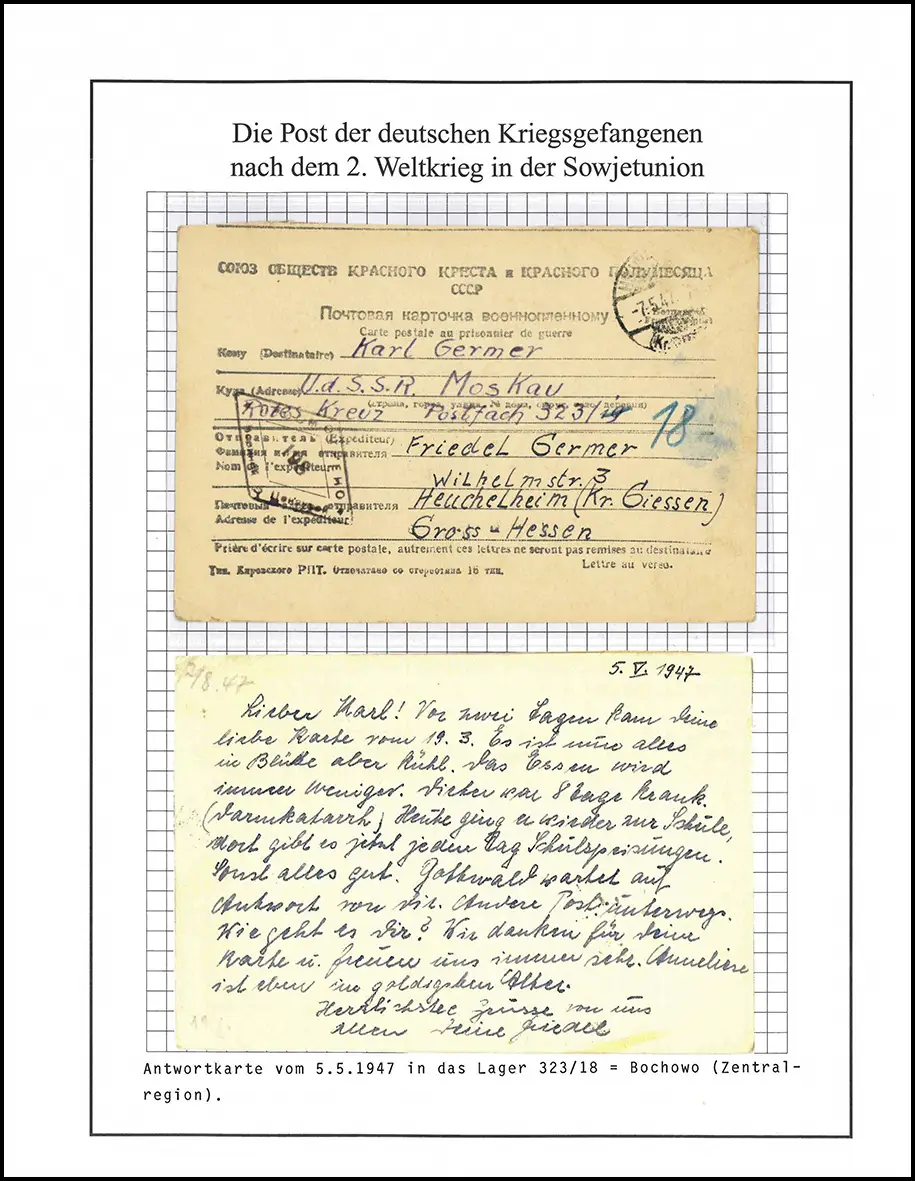 Die Post der deutschen Kriegsgefangenen
nach dem 2. Weltkrieg in der Sowjetunion
СОЮЗ ОБЩЕСТВ КРАСНОГО КРЕСТА и КРАСНОГО ПОЛУМЕСЯЦА
СССР
Почтовая карточка военнопленному
Carte postale au prisonnier de guerre
Кому (Destinataire) Karl Germer
Куда (Adresse) U.d.S.S.R. Moskau
(страна, город, улица, № дома, округ, село, деревня)
Rotes Kreuz Postfach 323/
18
Отправитель (Expéditeur)
Фамилия и имя отправителя Friedel Germer
Nom de l'expéditeur
Wilhelmstr. 3
Почтовый адрес отправителя Heuchelheim (Kr. Giessen)
Adresse de l'expéditeur
Gross-Hessen
Prière d'écrire sur carte postale, autrement ces lettres ne seront pas remises au destinataire
Тип. Кировского РПТ. Отпечатано со стереотипа 16 тип.
Lettre au verso.
-7.5.47
5. V. 1947
Lieber Karl! Vor zwei Tagen kam deine
liebe Karte vom 19. 3. Es ist nun alles
in Blüte aber kühl. Das Essen wird
immer weniger. Dieter war 8 Tage krank.
(Darmkatarrh) Heute ging er wieder zur Schule,
dort gibt es jetzt jeden Tag Schulspeisungen.
Sonst alles gut. Gottwald wartet auf
Antwort von dir. Andere Post unterwegs.
Wie geht es dir? Wir danken für deine
Karte u. freuen uns immer sehr. Anneliese
ist eben im goldigsten Alter.
Herzlichste Grüsse von uns
allen Deine Friedel
Antwortkarte vom 5.5.1947 in das Lager 323/18 = Bochowo (Zentral-
region).